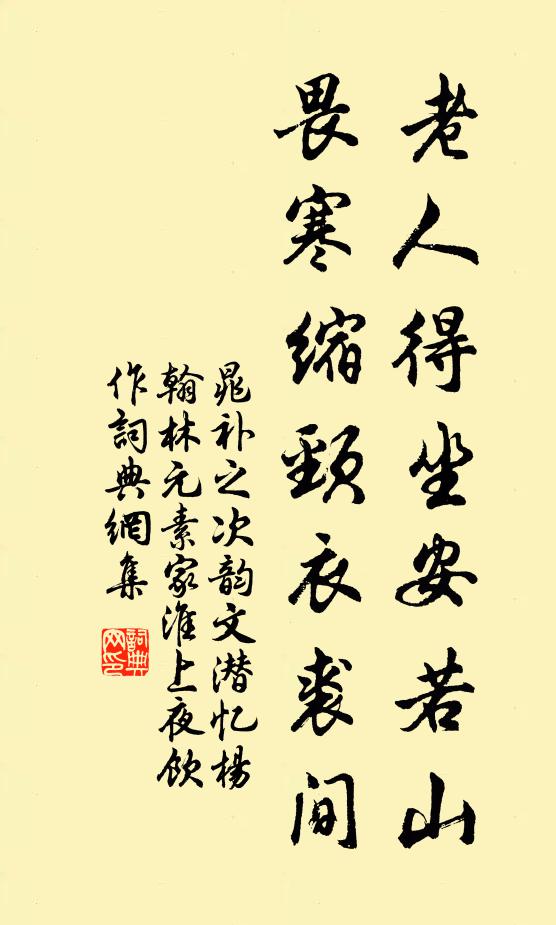 老人得坐安若山
畏寒縮頸衣裘間
晁补之次韵文潜忆楊
翰林元素家淮上夜飲
作詞典網集
詞典网印